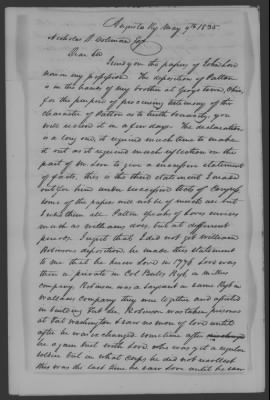 Augusta Ky May 9th 1835
Nicholas D. Coleman Esqr
Dear Sir
I send you the papers of John Love
now in my possession. The deposition of Patton
is in the hands of my brother at George town, Ohio,
for the purpose of procuring testimony of the
character of Patton as to truth & veracity, you
will receive it in a few days. The declaration
is a long one, it required much time to make
it out as it required much reflection on the
part of Mr Love to give a successive statement
of facts, this is the third statement I made
out for him under successive acts of Congress
some of the papers will not be of much use but
I send them all. Patton speaks of Loves services
much as Williams does, but at different
periods. I regret that I did not get William
Robinsons deposition, he made this statement
to me that he first saw Love in 1776 Love was
then a private in Col Butlers Regt in Millers
company. Robinson was a sergeant in same Regt in
company they were together and assisted
in building Fort Lee, Robinson was taken prisoner
at Fort Washington & saw no more of Love until
after he was exchanged some time after
he again met with Love, who was yet a regular
soldier but in what corps he did not recollect
this was the last time he saw Love until he saw